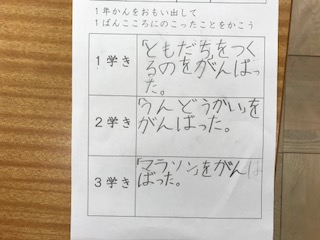 1年かんをおもい出して
1ばんこころにのこったことをかこう
1学き
「ともだち」をつく
るのをがんばっ
た。
2学き
「うんどうかい」を
がんばった。
3学き
「マラソン」をがん
ばった。